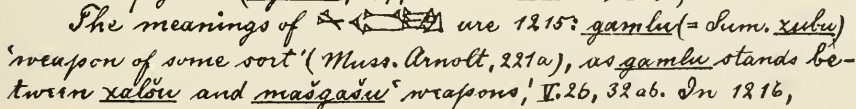 The meanings of are 1215: gamlu (= Sum. xubu)
'weapon of some sort' (Muss. Arnolt, 221a), as gamlu stands be-
tween xalŏu and mašgašu 'weapons,' V. 26, 32 ab. In 1216,